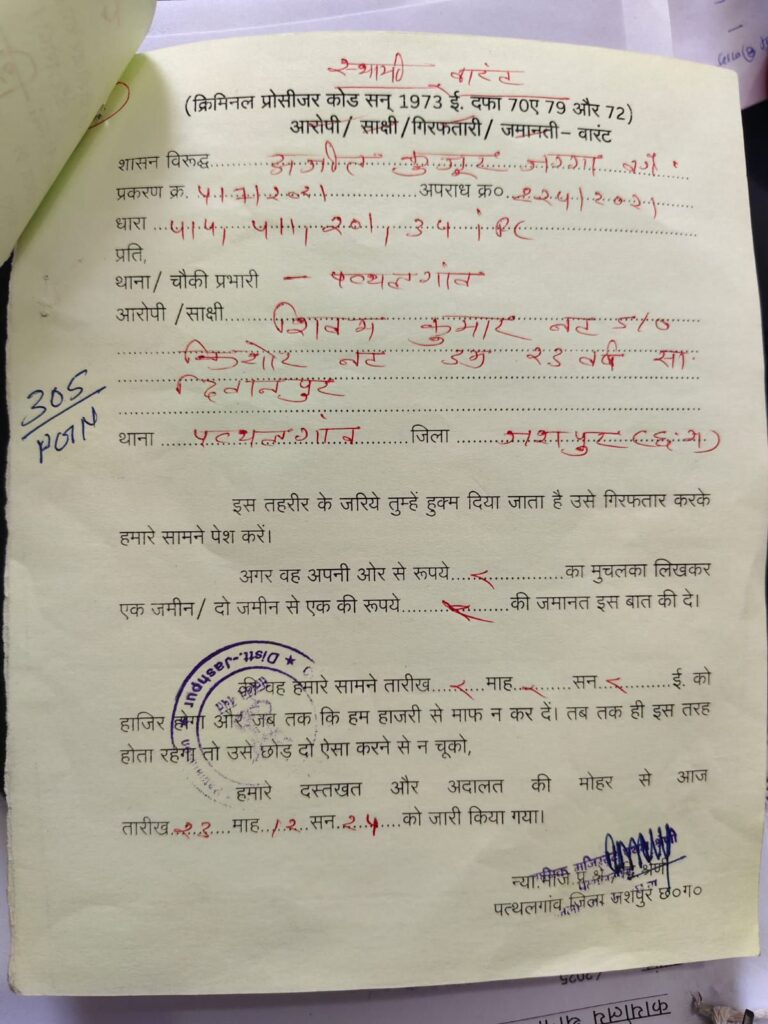 स्थायी वारंट
(क्रिमिनल प्रोसीजर कोड सन् 1973 ई. दफा 70ए 79 और 72)
आरोपी/ साक्षी/गिरफतारी/ जमानती- वारंट
शासन विरूद्ध
प्रकरण क्र. अपराध क्र०. २२५/२०२१
धारा ५१५, ५११, २०१, ३५ IPC
प्रति,
थाना/ चौकी प्रभारी - पत्थलगांव
आरोपी /साक्षी शिवम कुमार नट S/o
किशोर नट उम्र २३ वर्ष सा.
दिवानपुर
305
PGN
थाना पत्थलगांव जिला जशपुर (छ.ग.)
इस तहरीर के जरिये तुम्हें हुक्म दिया जाता है उसे गिरफतार करके
हमारे सामने पेश करें।
अगर वह अपनी ओर से रूपये का मुचलका लिखकर
एक जमीन/ दो जमीन से एक की रूपये की जमानत इस बात की दे।
Distt.-Jashpur
की वह हमारे सामने तारीख माह सन ई. को
हाजिर होगा और जब तक कि हम हाजरी से माफ न कर दें। तब तक ही इस तरह
होता रहेगा तो उसे छोड़ दो ऐसा करने से न चूको,
हमारे दस्तखत और अदालत की मोहर से आज
तारीख २३ माह १२ सन २५ को जारी किया गया।
पत्थलगांव, जिला जशपुर छ०ग०